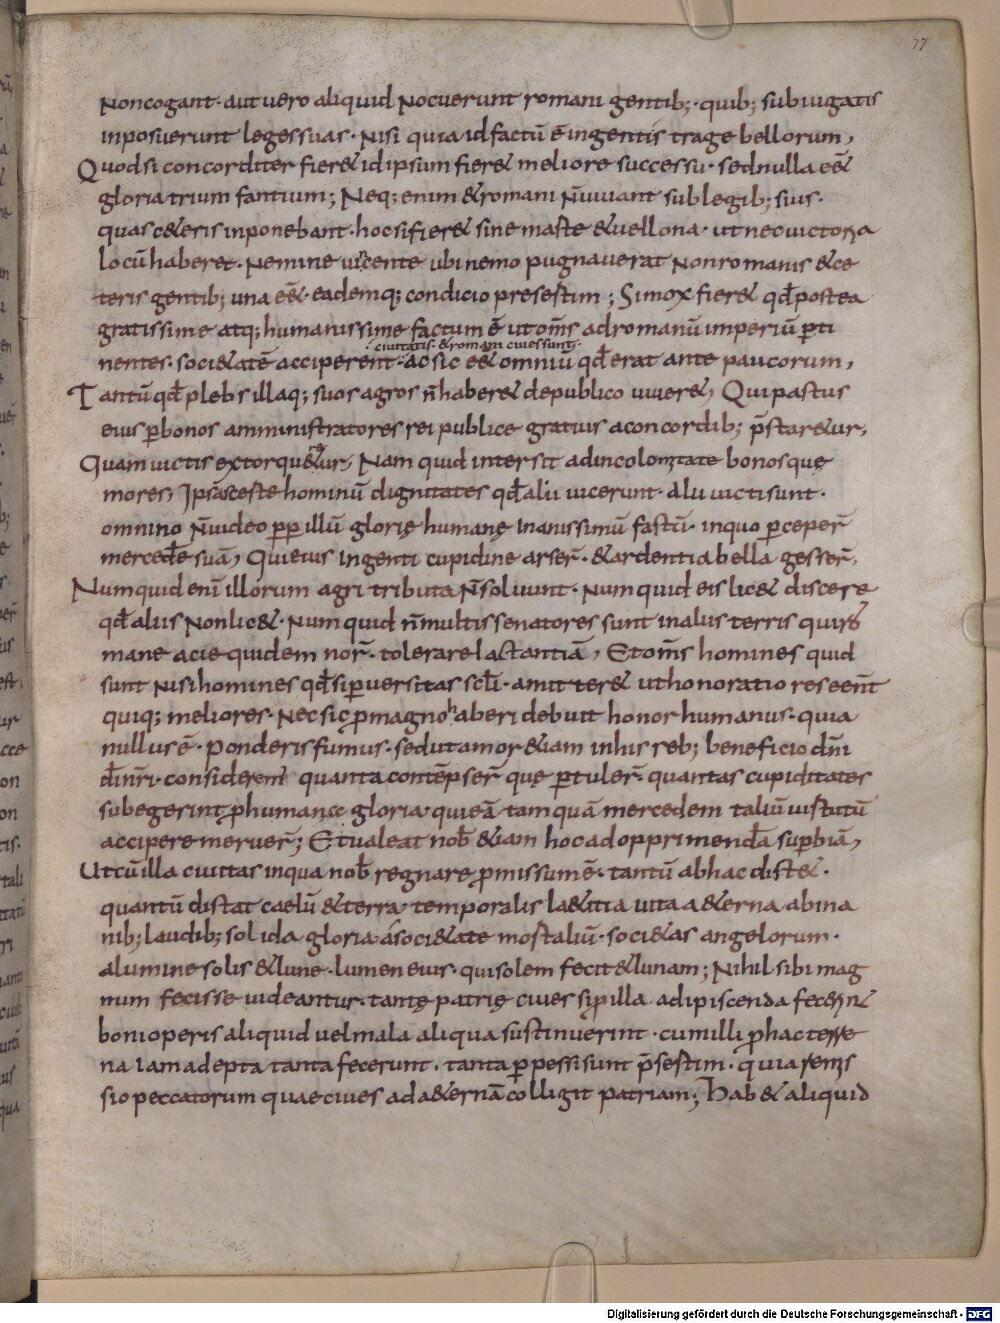 77
Noncogant· aut uero aliquid Nocuerunt romani gentib;· quib; subiugatis
inposuerunt leges suas· Nisi quia id factū ē ingentis trage bellorum,
Quodsi concorditer fier& id ipsum fier& meliore successu· sed nulla eē&
gloria trium fantium; Neq; enim & romani N̄ uiuiant sub legib; suis·
quas c&eris inponebant· hoc si fier& sine maste & uellona· ut nec uictoria
locū haberet· Nemine uincente ubi nemo pugnauerat Non romanis & ce
teris gentib; una eē&· eademq; condicio presestim; Si mox fier& qđ postea
gratissime atq; humanissime factum ē ut om̄s ad romanū imperiū p̱ti
ciuitatis· & romani ciues sunt·
nentes· soci&atē acciperent· ac sic eē& omniū qđ erat ante paucorum,
Tantū qđ plebs illa q; suos agros n̄ haber& de publico uiuer&, Qui pastus
eius p̱ bonos amministratores rei publice gratius a concordib; p̄star&ur,
Quam uictis extorquer&ur, Nam quid intersit ad incolomitate bonosque
mores, Ipsas ceste hominū dignitates qđ alii uicerunt· alii uicti sunt·
omnino N̄ uideo p̱p̱ illū glorię humanę inanissimū fastū· in quo p̱ceper̄
mercedē suā, Qui eius ingenti cupidine arser̄· & ardentia bella gesser̄,
Numquid eni illorum agri tributa N̄ soluunt· Num quid eis lic& discere
qđ aliis Non lic&· Num quid n̄ multi s senatores sunt in aliis terris qui urb̄
mane acie quidem nor̄· tolerare lactantiā, Et om̄s homines quid
sunt Nisi homines qđ si p̱uersitas scl̄i· amitter& ut honoratiores eēnt
quiq; meliores· Nec sic p̱ magno haberi debuit honor humanus· quia
nullus ē· ponderis fumus· sed utamor &iam in his reb; beneficio dn̄i
dī nr̄i· considerem̄ quanta contēpser̄ quę p̱tuler̄ quantas cupiditates
subegerint p̱ humana gloria· qui eā tamquā mercedem taliū uistutū
accipere meruer̄; Et ualeat nob̄ &iam hoc ad opprimendā sup̱biā,
Ut cū illa ciuitas in qua nob̄ regnare p̱missum ē· tantū ab hac dist&·
quantū distat caelū & terra· temporalis la&itia uita a&erna ab ina
nib; laudib; solida gloria á soci&ate mostaliū· soci&as angelorum·
a lumine solis & lune· lumen eius· qui solem fecit & lunam; Nihil sibi mag
num fecisse uideantur· tantę patrię ciues si p̱ illa adipiscenda fecerin&
boni operis aliquid uel mala aliqua sustinuerint· cum illi p̱ hac terre
na iam adepta tanta fecerunt· tanta p̱pessi sunt p̄sestim· quia remis
sio peccatorum quae ciues ad a&ernā colligit patriam; Hab& aliquid
Digitalisierung gefördert durch die Deutsche Forschungsgemeinschaft - DFG